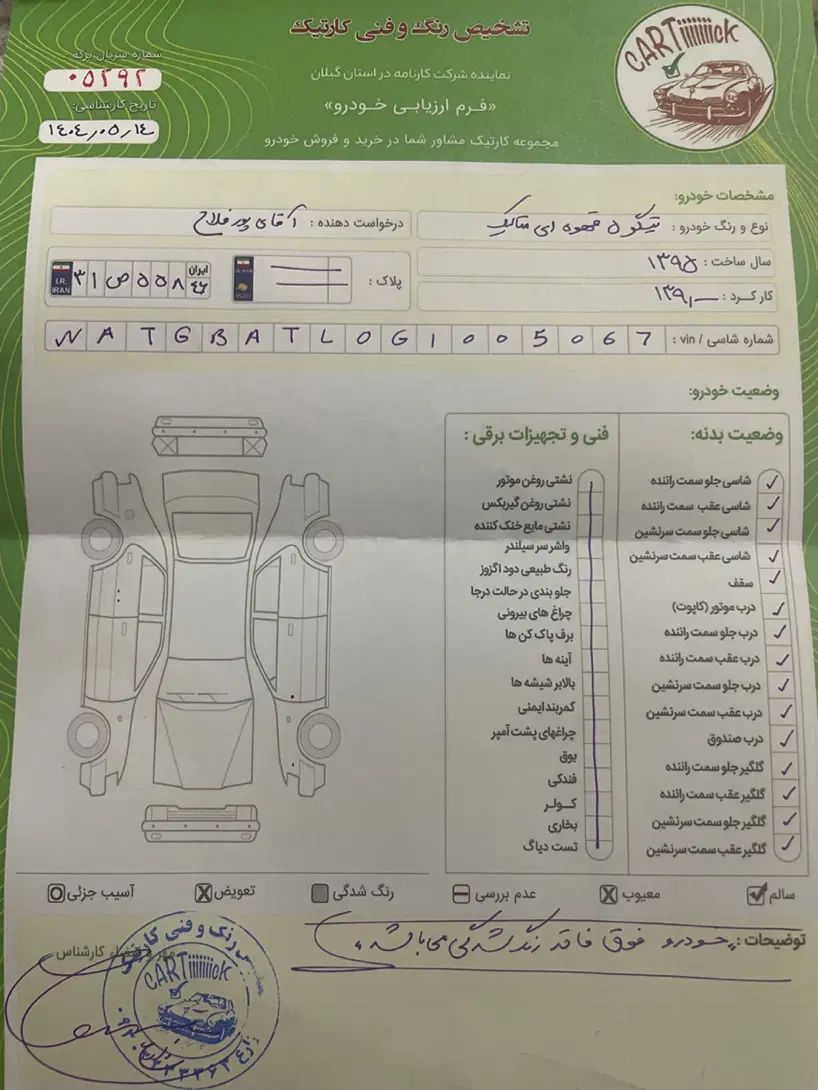 تشخیص رنگ و فنی کارتیک
CARTiiiiiiick
شماره سریال برگه:
۰۵۲۹۲
نماینده شرکت کارنامه در استان گیلان
تاریخ کارشناسی:
«فرم ارزیابی خودرو»
۱۴۰۴,۰۵,۱۴
مجموعه کارتیک مشاور شما در خرید و فروش خودرو
مشخصات خودرو:
نوع و رنگ خودرو : تیگو ۵ قهوه ای متالیک
درخواست دهنده : آقای پورفلاح
سال ساخت : ۱۳۹۵
پلاک :
ایران ۴۶ ۳۱ ص ۵۵۸
I.R. IRAN
کارکرد :
شماره شاسی / vin : N A T G B A T L O G 1 0 0 5 0 6 7
وضعیت خودرو:
وضعیت بدنه:
شاسی جلو سمت راننده ✓
شاسی عقب سمت راننده ✓
شاسی جلو سمت سرنشین ✓
شاسی عقب سمت سرنشین ✓
سقف ✓
درب موتور (کاپوت) ✓
درب جلو سمت راننده ✓
درب عقب سمت راننده ✓
درب جلو سمت سرنشین ✓
درب عقب سمت سرنشین ✓
درب صندوق ✓
گلگیر جلو سمت راننده ✓
گلگیر عقب سمت راننده ✓
گلگیر جلو سمت سرنشین ✓
گلگیر عقب سمت سرنشین ✓
فنی و تجهیزات برقی :
نشتی روغن موتور
نشتی روغن گیربکس
نشتی مایع خنک کننده
واشر سر سیلندر
رنگ طبیعی دود اگزوز
جلو بندی در حالت درجا
چراغ های بیرونی
برف پاک کن ها
آینه ها
بالابر شیشه ها
کمربند ایمنی
چراغهای پشت آمپر
بوق
فندکی
کولر
بخاری
تست دیاگ
سالم
معیوب
عدم بررسی
رنگ شدگی
تعویض
آسیب جزئی
توضیحات : خودرو فوق فاقد رنگ شدگی می باشد.
مهر و امضاء کارشناس
CARTiiiiiiick